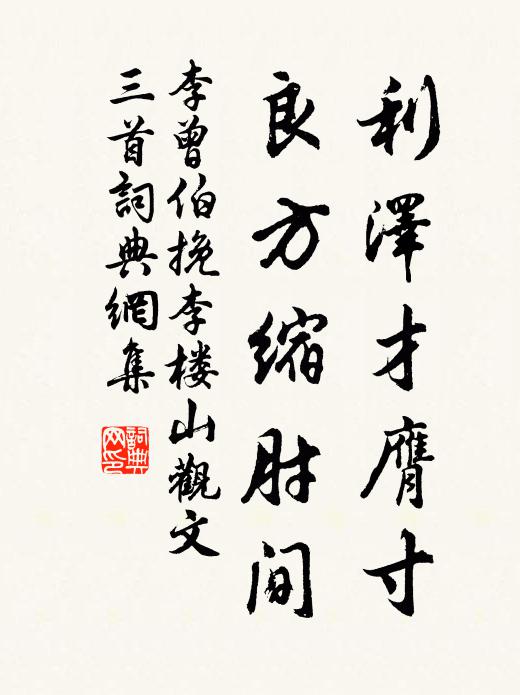 利澤才膺寸
良方縮肘间
李曾伯挽李楼山觀文
三首詞典網集
詞典网印